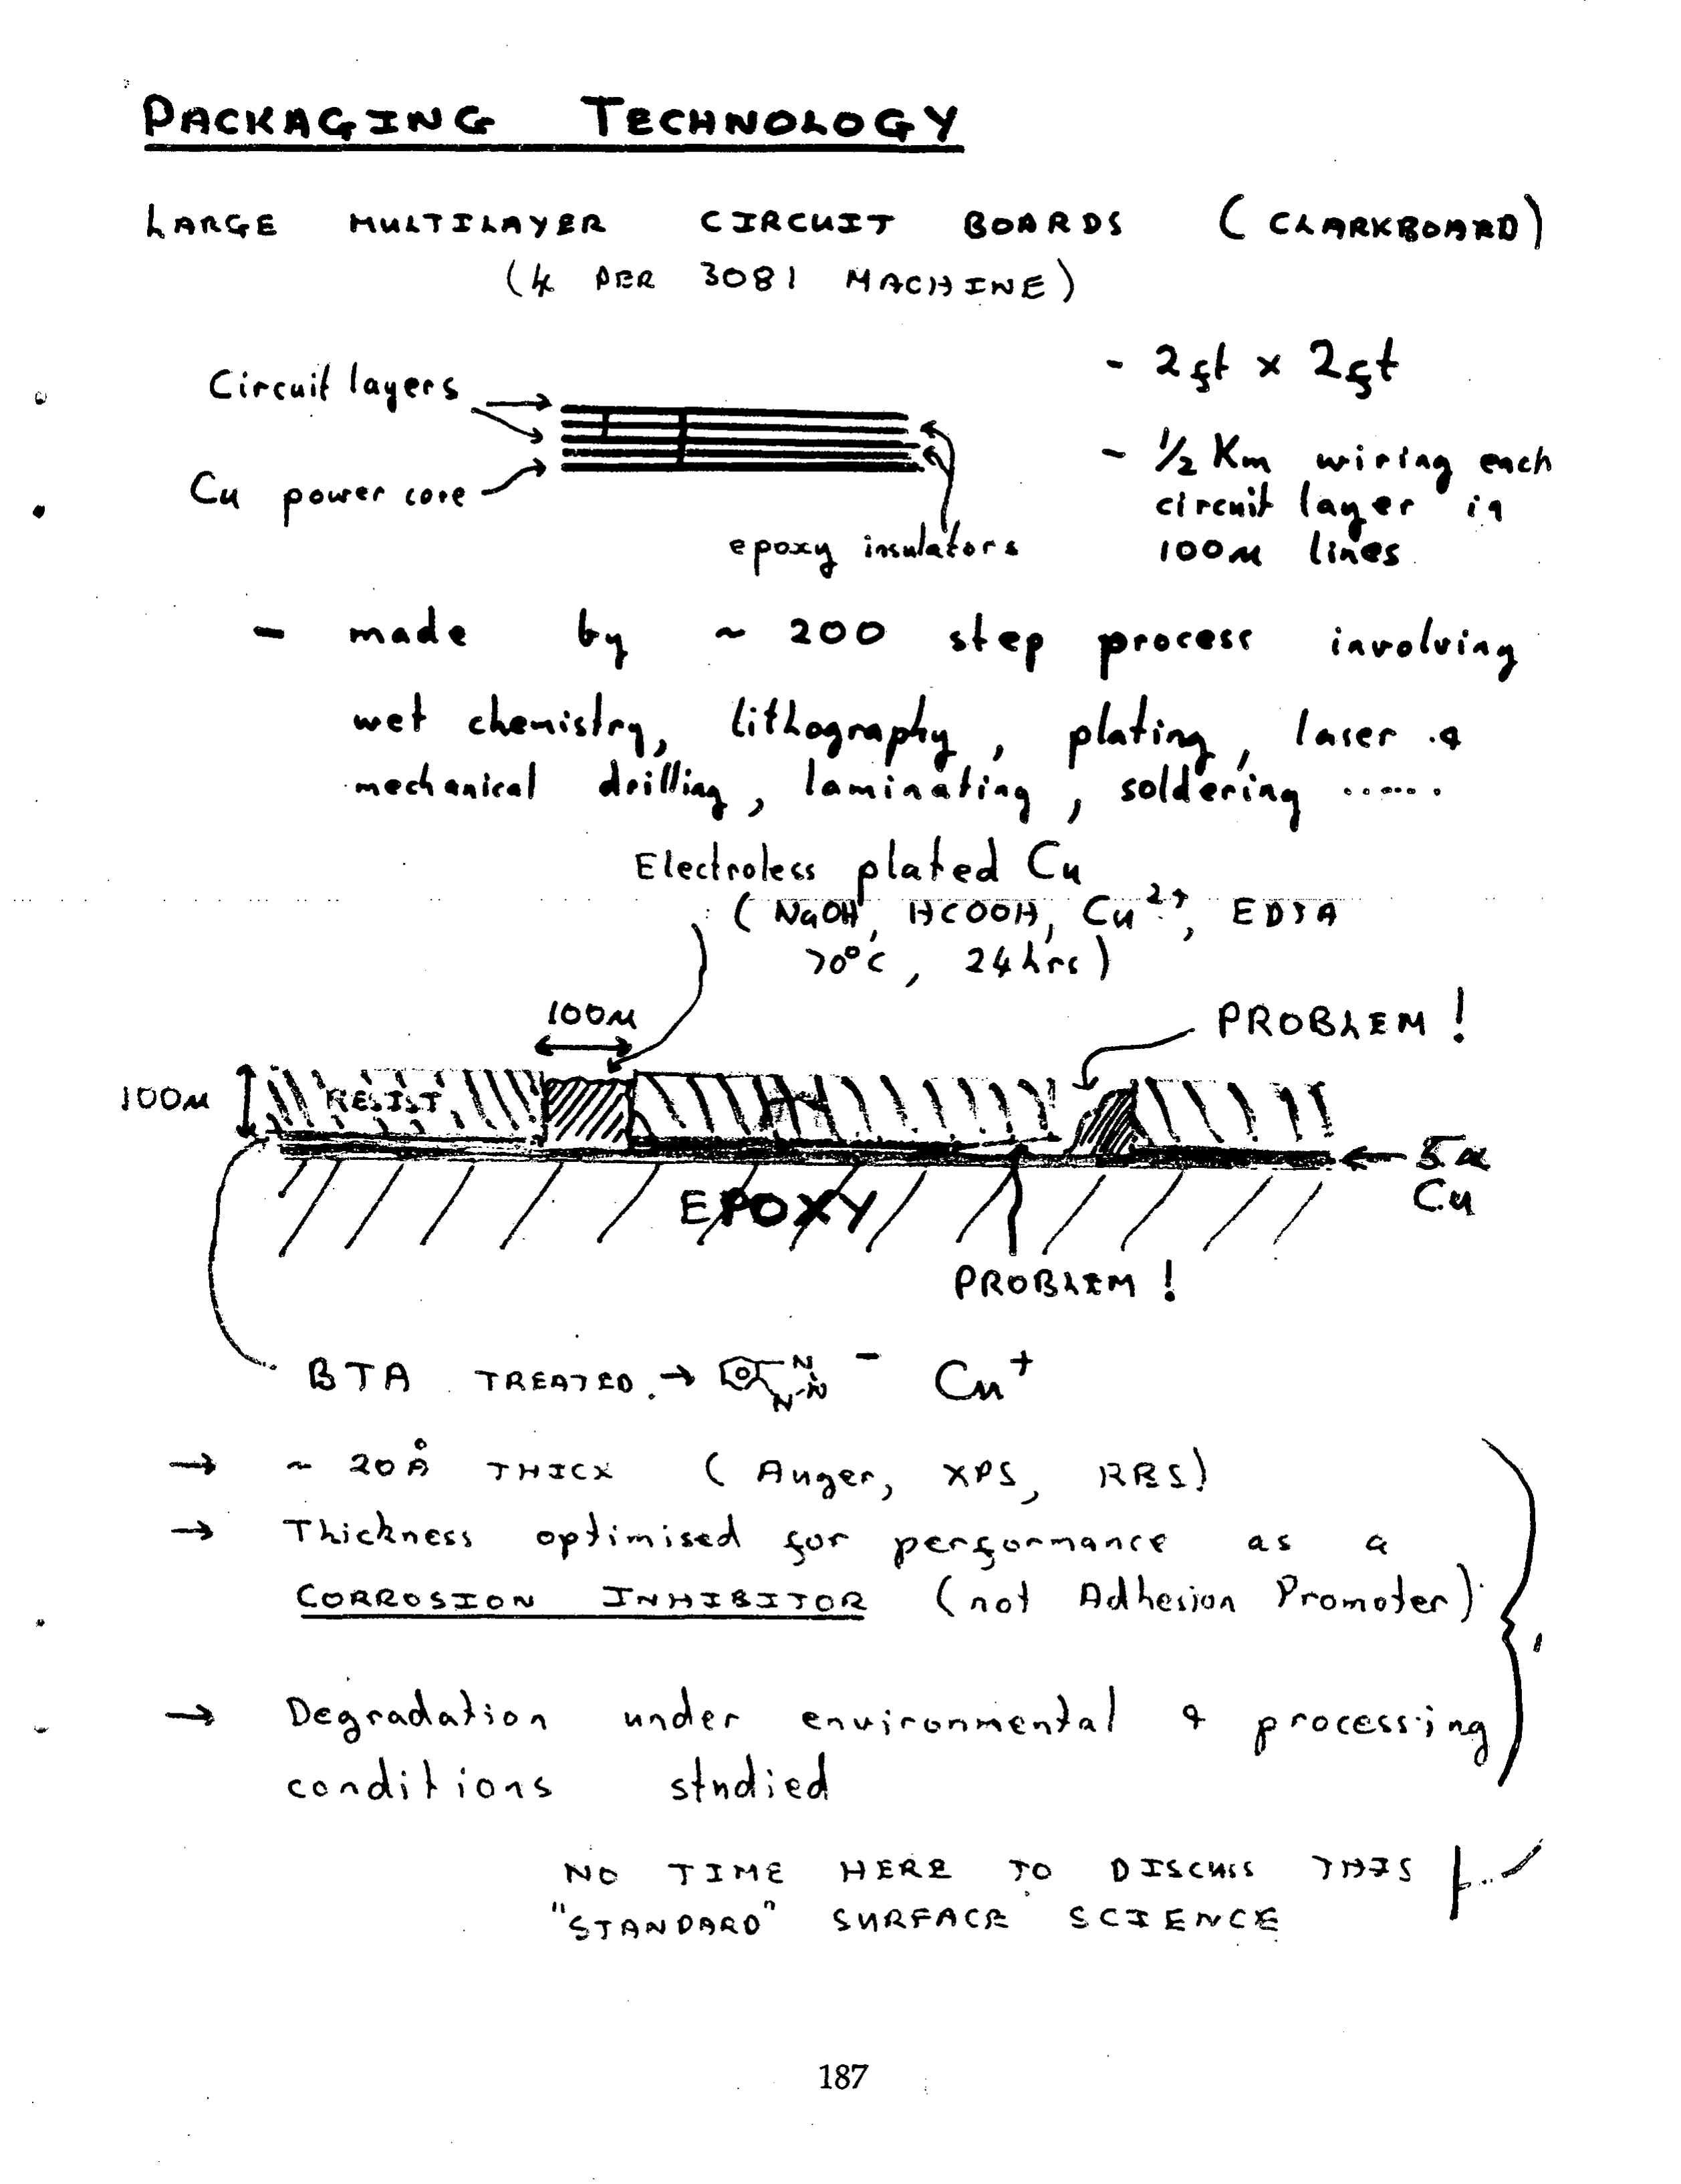 PACKAGING TECHNOLOGY
LARGE MULTILAYER CIRCUIT BOARDS (CLARKBOARD)
(4 PER 3081 MACHINE)
Circuit layers
Cu power core
epoxy insulators
- 2ft x 2ft
- 1/2 Km wiring each
circuit layer in
100μ lines
- made by ~ 200 step process involving
wet chemistry, lithography, plating, laser &
mechanical drilling, laminating, soldering ......
Electroless plated Cu
(NaOH, HCOOH, Cu2+, EDTA
70°C, 24hrs)
100μ
PROBLEM!
100μ
RESIST
5μ
Cu
EPOXY
PROBLEM!
BTA TREATED. → N N N - Cu+
→ ~ 20Å THICK (Auger, XPS, RBS)
→ Thickness optimised for performance as a
CORROSION INHIBITOR (not Adhesion Promoter)
→ Degradation under environmental & processing
conditions studied
NO TIME HERE TO DISCUSS THIS
"STANDARD" SURFACE SCIENCE
187